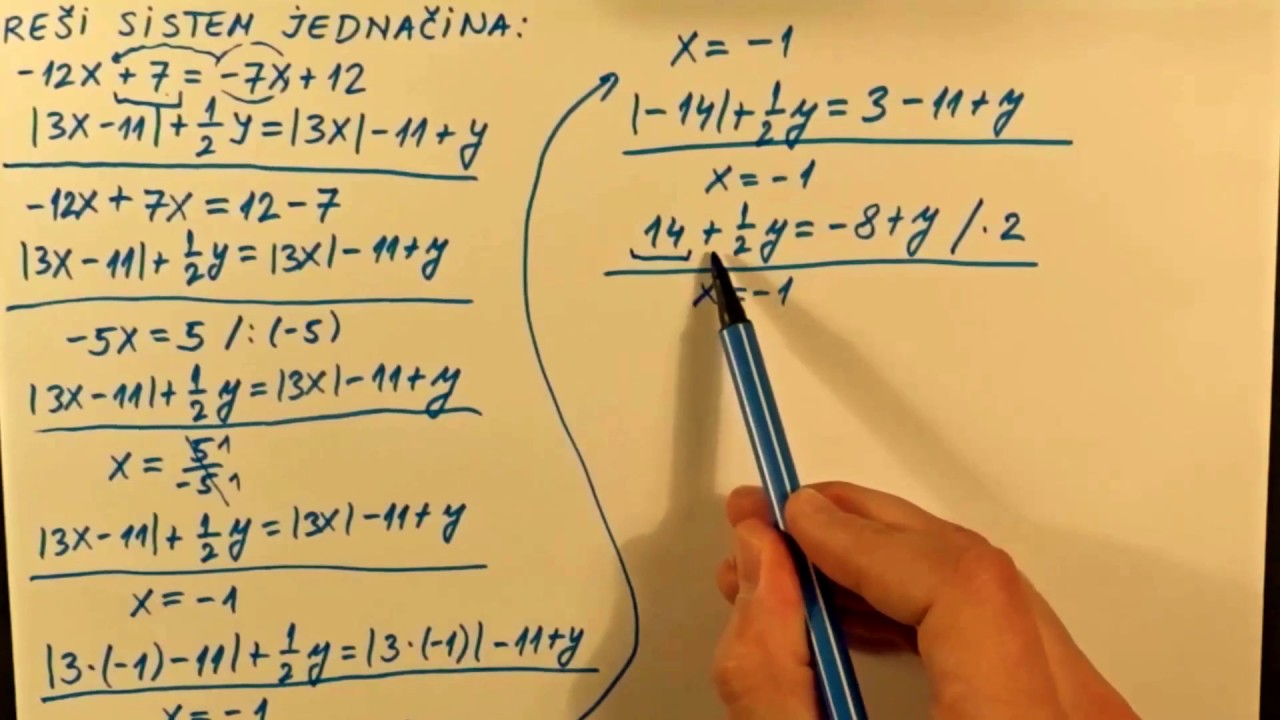 REŠi SiSTEM JEDNAČiNA:
-12x + 7 = -7x + 12
|3x - 11| + 1/2 y = |3x| - 11 + y
-12x + 7x = 12 - 7
|3x - 11| + 1/2 y = |3x| - 11 + y
-5x = 5 /: (-5)
|3x - 11| + 1/2 y = |3x| - 11 + y
x = 5 1/-5 1
|3x - 11| + 1/2 y = |3x| - 11 + y
x = -1
|3·(-1) - 11| + 1/2 y = |3·(-1)| - 11 + y
x = -1
x = -1
|-14| + 1/2 y = 3 - 11 + y
x = -1
14 + 1/2 y = -8 + y /· 2
x = -1